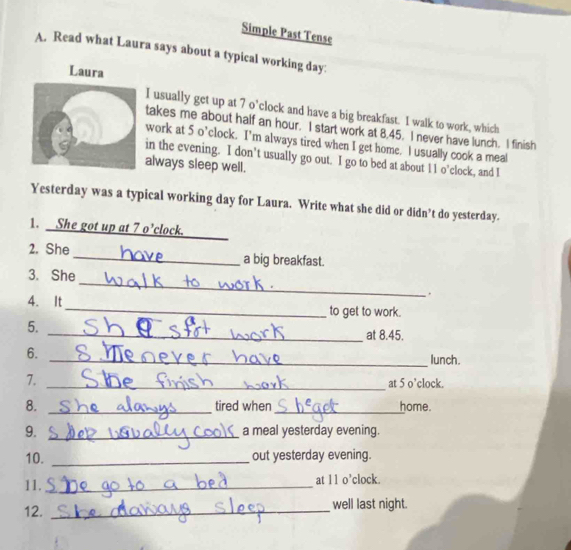 Simple Past Tense
A. Read what Laura says about a typical working day:
Laura
I usually get up at 7 o'clock and have a big breakfast. I walk to work, which
takes me about half an hour. I start work at 8.45. I never have lunch. I finish
work at 5 o'clock. I'm always tired when I get home. I usually cook a meal
in the evening. I don't usually go out. I go to bed at about 11 o'clock, and I
always sleep well.
Yesterday was a typical working day for Laura. Write what she did or didn't do yesterday.
1. She got up at 7 o'clock.
2. She have a big breakfast.
3. She walk to work.
4. It to get to work.
5. She work at 8.45.
6. never have lunch.
7. She finish work at 5 o'clock.
8. She tired when She get home.
9. usually cook a meal yesterday evening.
10. out yesterday evening.
11. She go to a bed at 11 o'clock.
12. She sleep well last night.